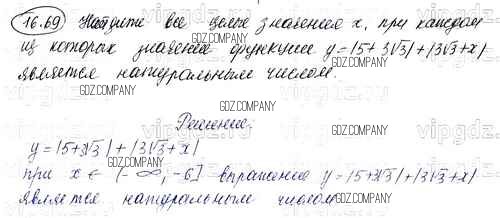 16.69 Найдите все целые значения x, при каждом
из которых значение функции y=|5+3√3|+|3√3+x|
является натуральным числом.
GDZ.COMPANY
Решение:
y=|5+3√3|+|3√3+x|
при x ∈ (-∞, -6] выражение y=|5+3√3|+|3√3+x|
является натуральным числом